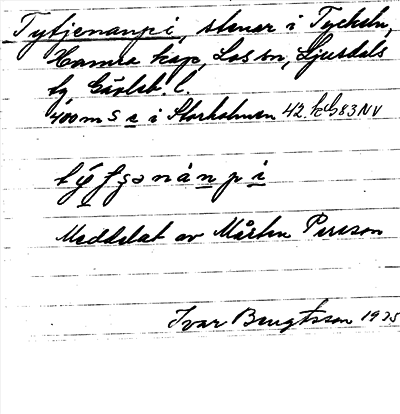 Tytjenanpi, stenar i Tyckeln,
Hamra kap, Los sn, Ljusdals
tg, Gävleb. l.
400 m S e i Storholmen 42. kb83NV
Meddelat av Mårten Persson
Ivar Bengtsson 1975